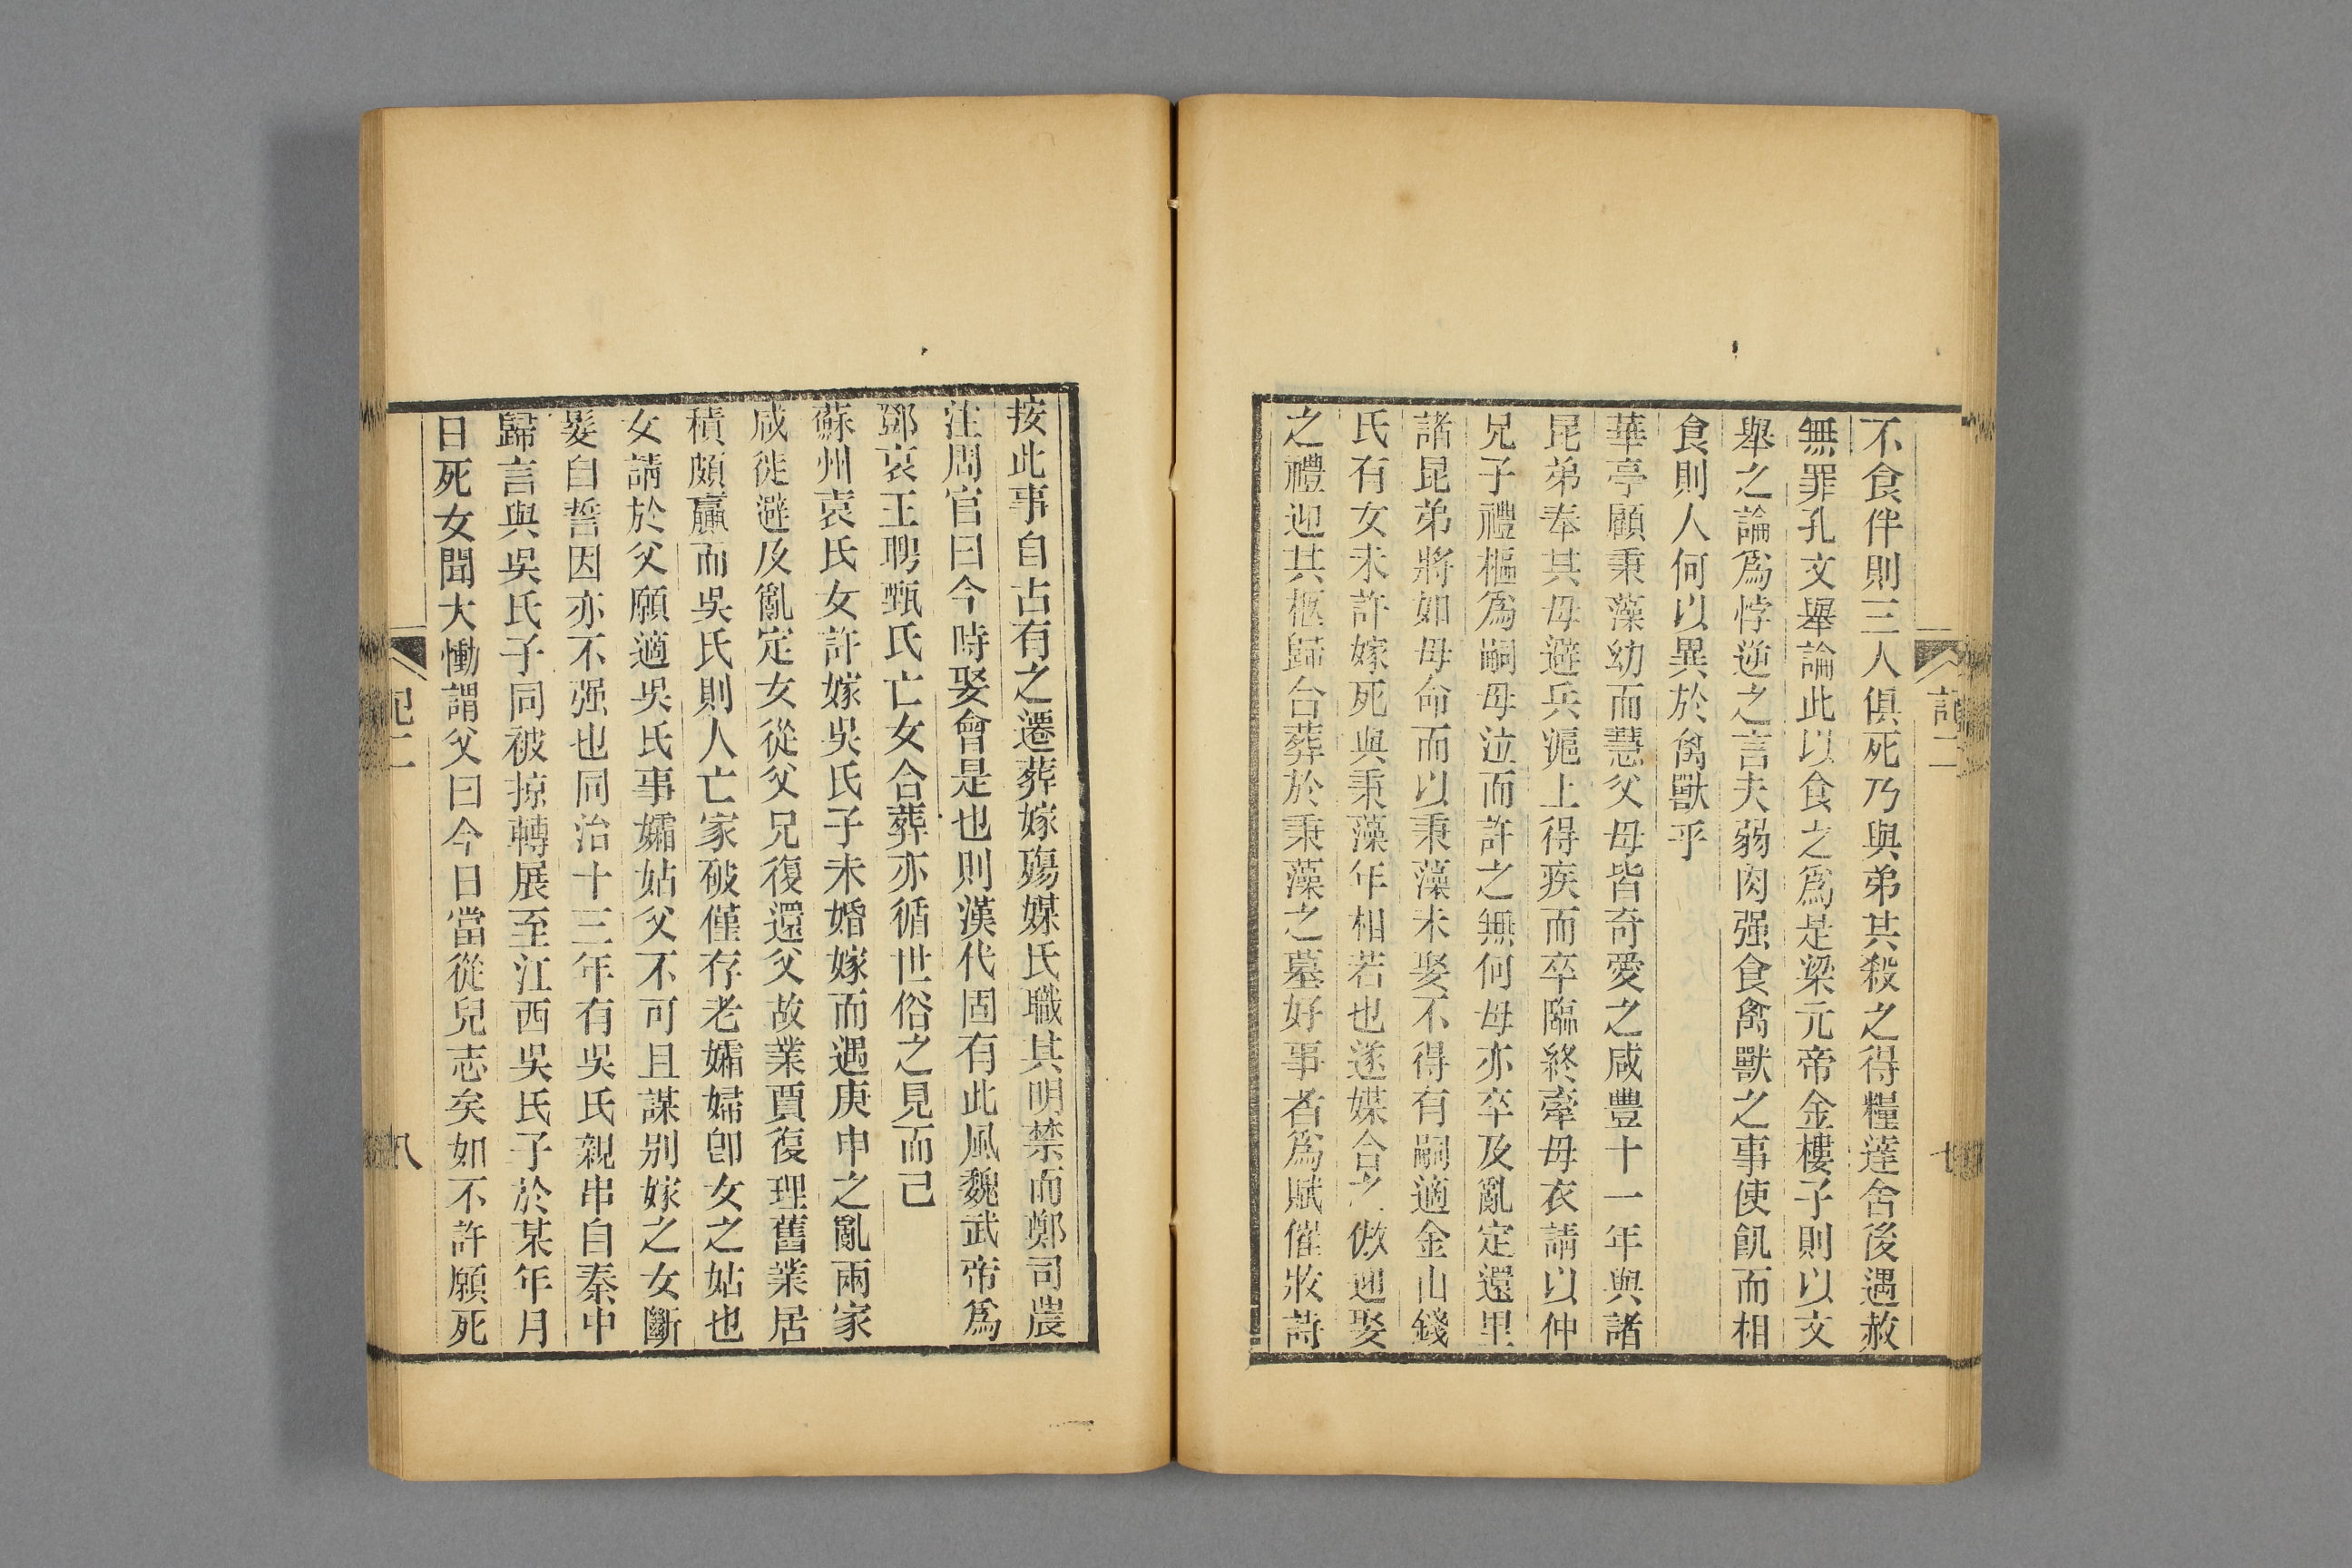 不食伴則三人俱死乃與弟其殺之得糧達舍後遇赦
無罪孔文舉論此以食之爲是梁元帝金樓子則以文
舉之論爲悖逆之言夫弱肉强食禽獸之事使飢而相
食則人何以異於禽獸乎
華亭顧秉藻幼而慧父母皆奇愛之咸豐十一年與諸
昆弟奉其母避兵滬上得疾而卒臨終牽母衣請以仲
兄子禮樞爲嗣母泣而許之無何母亦卒及亂定還里
諸昆弟將如母命而以秉藻未娶不得有嗣適金山錢
氏有女未許嫁死與秉藻年相若也遂媒合之倣迎娶
之禮迎其柩歸合葬於秉藻之墓好事者爲賦催妝詩
記二
七
按此事自古有之遷葬嫁殤媒氏職其明禁而鄭司農
注周官曰今時娶會是也則漢代固有此風魏武帝爲
鄧哀王聘甄氏亡女合葬亦循世俗之見而已
蘇州袁氏女許嫁吳氏子未婚嫁而遇庚申之亂兩家
咸徙避及亂定女從父兄復還父故業賈復理舊業居
積頗贏而吳氏則人亡家破僅存老孀婦卽女之姑也
女請於父願適吳氏事孀姑父不可且謀別嫁之女斷
髮自誓因亦不强也同治十三年有吳氏親串自秦中
歸言與吳氏子同被掠轉展至江西吳氏子於某年月
日死女聞大慟謂父曰今日當從兒志矣如不許願死
記二
八